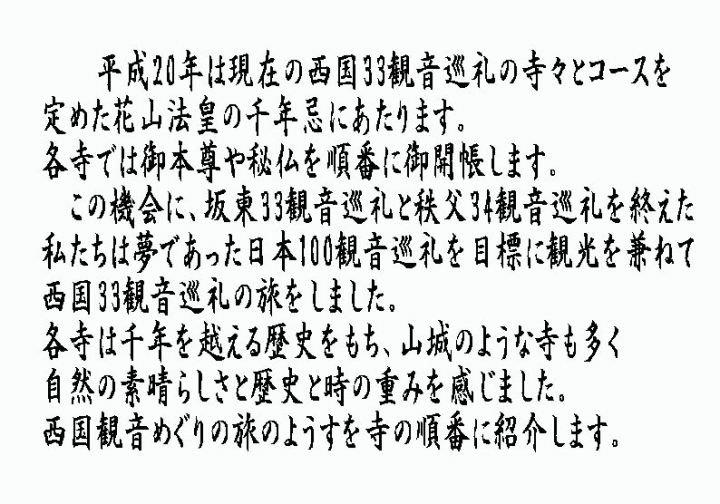 平成20年は現在の西国33観音巡礼の寺々とコースを
定めた花山法皇の千年忌にあたります。
各寺では御本尊や秘仏を順番に御開帳します。
この機会に、坂東33観音巡礼と秩父34観音巡礼を終えた
私たちは夢であった日本100観音巡礼を目標に観光を兼ねて
西国33観音巡礼の旅をしました。
各寺は千年を越える歴史をもち、山城のような寺も多く
自然の素晴らしさと歴史と時の重みを感じました。
西国観音めぐりの旅のようすを寺の順番に紹介します。